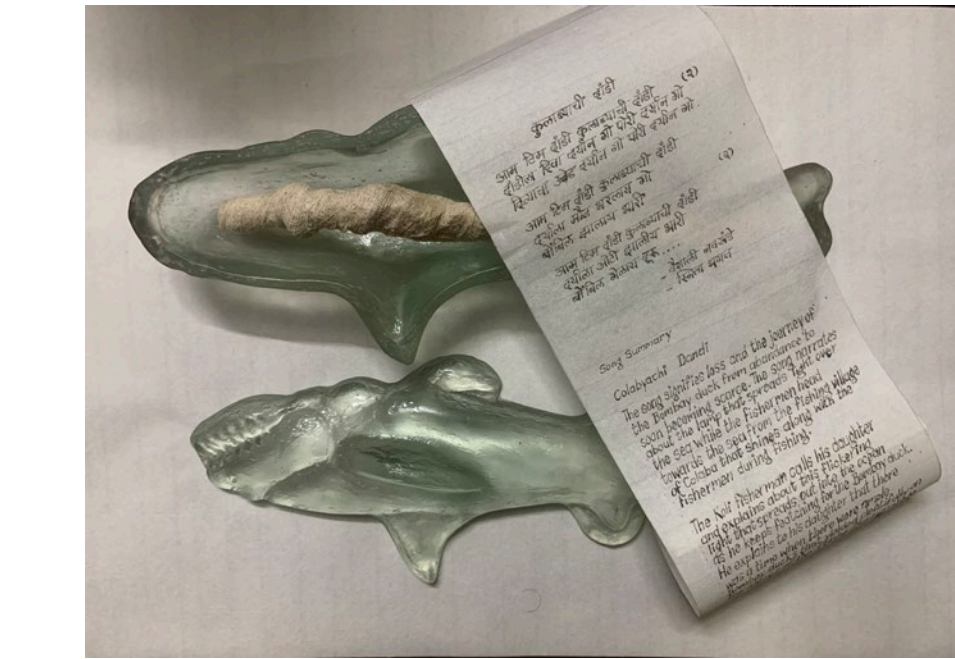 कुलाब्याची दांडी
आम टिम दांडी कुलाब्याची दांडी (२)
दांडीला दिवा दर्यान गो पोरी दर्यान गो
दिव्याचा उजेड दर्यान गो पोरी दर्यान गो.
आम टिम दांडी कुलाब्याची दांडी (२)
दर्याला गो
बोंबिल झालाय भारी
आम टिम दांडी कुलाब्याची दांडी
दर्याला झालीय भारी
बोंबिल गेलाय दूर....
- वैशाली
-
Song Summary
Colabyachi Dandi
The song signifies loss and the journey of
the Bombay duck from abundance to
soon becoming scarce. The song narrates
about the lamp that spreads light over
the sea while the fishermen head
towards the sea from the fishing village
of Colaba that shines along with the
fishermen during fishing.
The Koli fisherman calls his daughter
and explains about this flickering
light that spreads out into the ocean
as he keeps fetching for the Bombay duck.
He explains to his daughter that there
was a time when there were